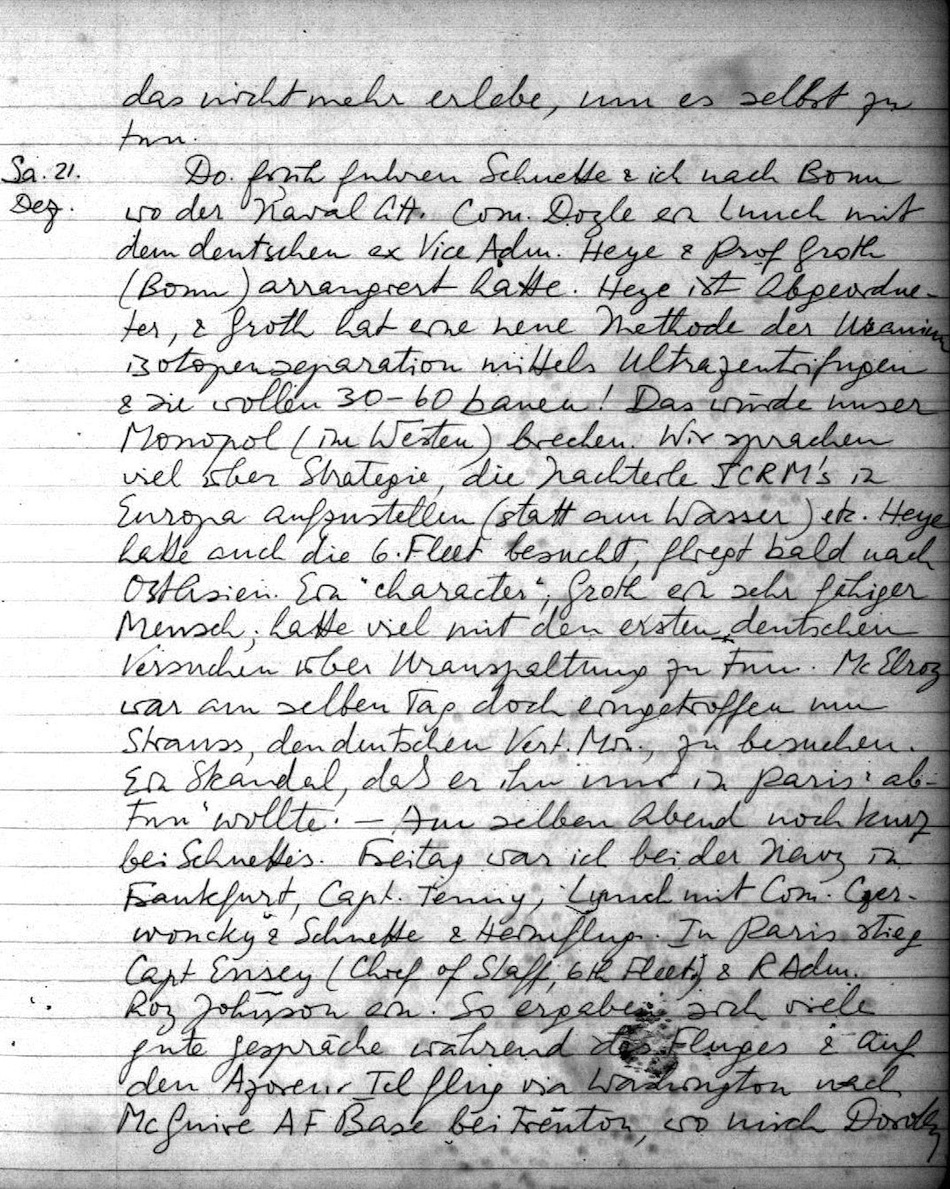 das nicht mehr erlebe, um es selbst zu
tun.
Sa. 21. Do. früh fuhren Schnette & ich nach Bonn
Dez. wo der Naval Att. Com. Doyle ein Lunch mit
dem deutschen ex Vice Adm. Heye & Prof Groth
(Bonn) arrangiert hatte. Heye ist Abgeordne-
ter, & Groth hat eine neue Methode der Uranium
isotopenseparation mittels Ultrazentrifugen
& sie wollen 30-60 bauen! Das würde unser
Monopol (im Westen) brechen. Wir sprachen
viel über Strategie, die Nachteile ICRM's in
Europa aufzustellen (statt am Wasser) etc. Heye
hatte auch die 6. Fleet besucht, fliegt bald nach
OstAsien. Ein "character"; Groth ein sehr fähiger
Mensch; hatte viel mit den ersten deutschen
Versuchen über Uranspaltung zu tun. McElroy
war am selben Tag doch eingetroffen um
Strauss, den deutschen Vert. Min., zu besuchen.
Ein Skandal, daß er ihn nur in Paris "ab-
tun" wollte. – Am selben Abend noch kurz
bei Schnettes. Freitag war ich bei der Navy in
Frankfurt, Capt. Tenny, Lunch mit Com. Czer-
woncky & Schnette & Heimflug. In Paris stieg
Capt Ensey (Chief of Staff, 6th Fleet) & R Adm.
Roy Johnson ein. So ergaben sich viele
gute Gespräche während des Fluges & auf
den Azoren. Ich flug via Washington nach
McGuire AF Base bei Trenton, wo mich Dorothy